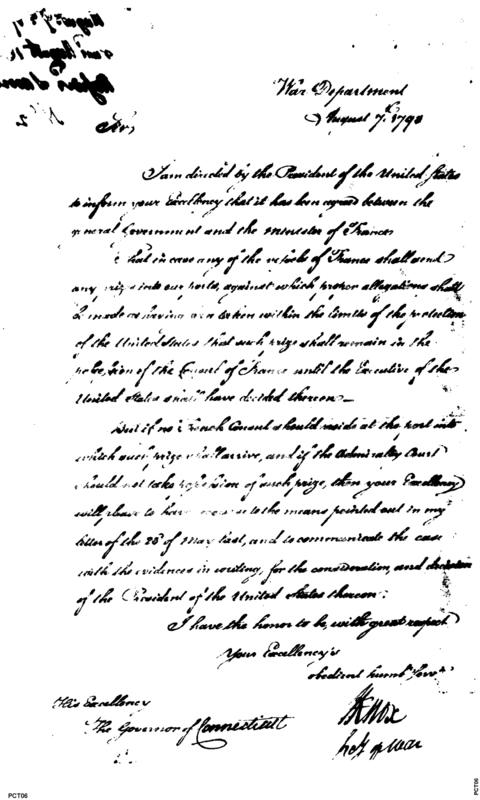 War Department
August 7th 1793
Sir,
I am directed by the President of the United States
to inform your Excellency that it has been agreed between the
general Government and the minister of France
That in case any of the vessels of France shall send
any prize into our ports, against which proper allegations shall
be made as having been taken within the limits of the protection
of the United States that such prize shall remain in the
possession of the Consul of France until the Executive of the
United States shall have decided thereon—
But if no French Consul should reside at the port into
which such prize shall arrive, and if the Admiralty Court
should not take possession of such prize, then your Excellency
will please to have recourse to the means pointed out in my
letter of the 23d of May last, and to communicate the case
with the evidences in writing, for the consideration, and decision
of the President of the United States thereon.
I have the honor to be, with great respect
Your Excellency's
obedient humb. Servt.
HKnox
Secy of War
His Excellency
The Governor of Connecticut
PCT06
PCT06